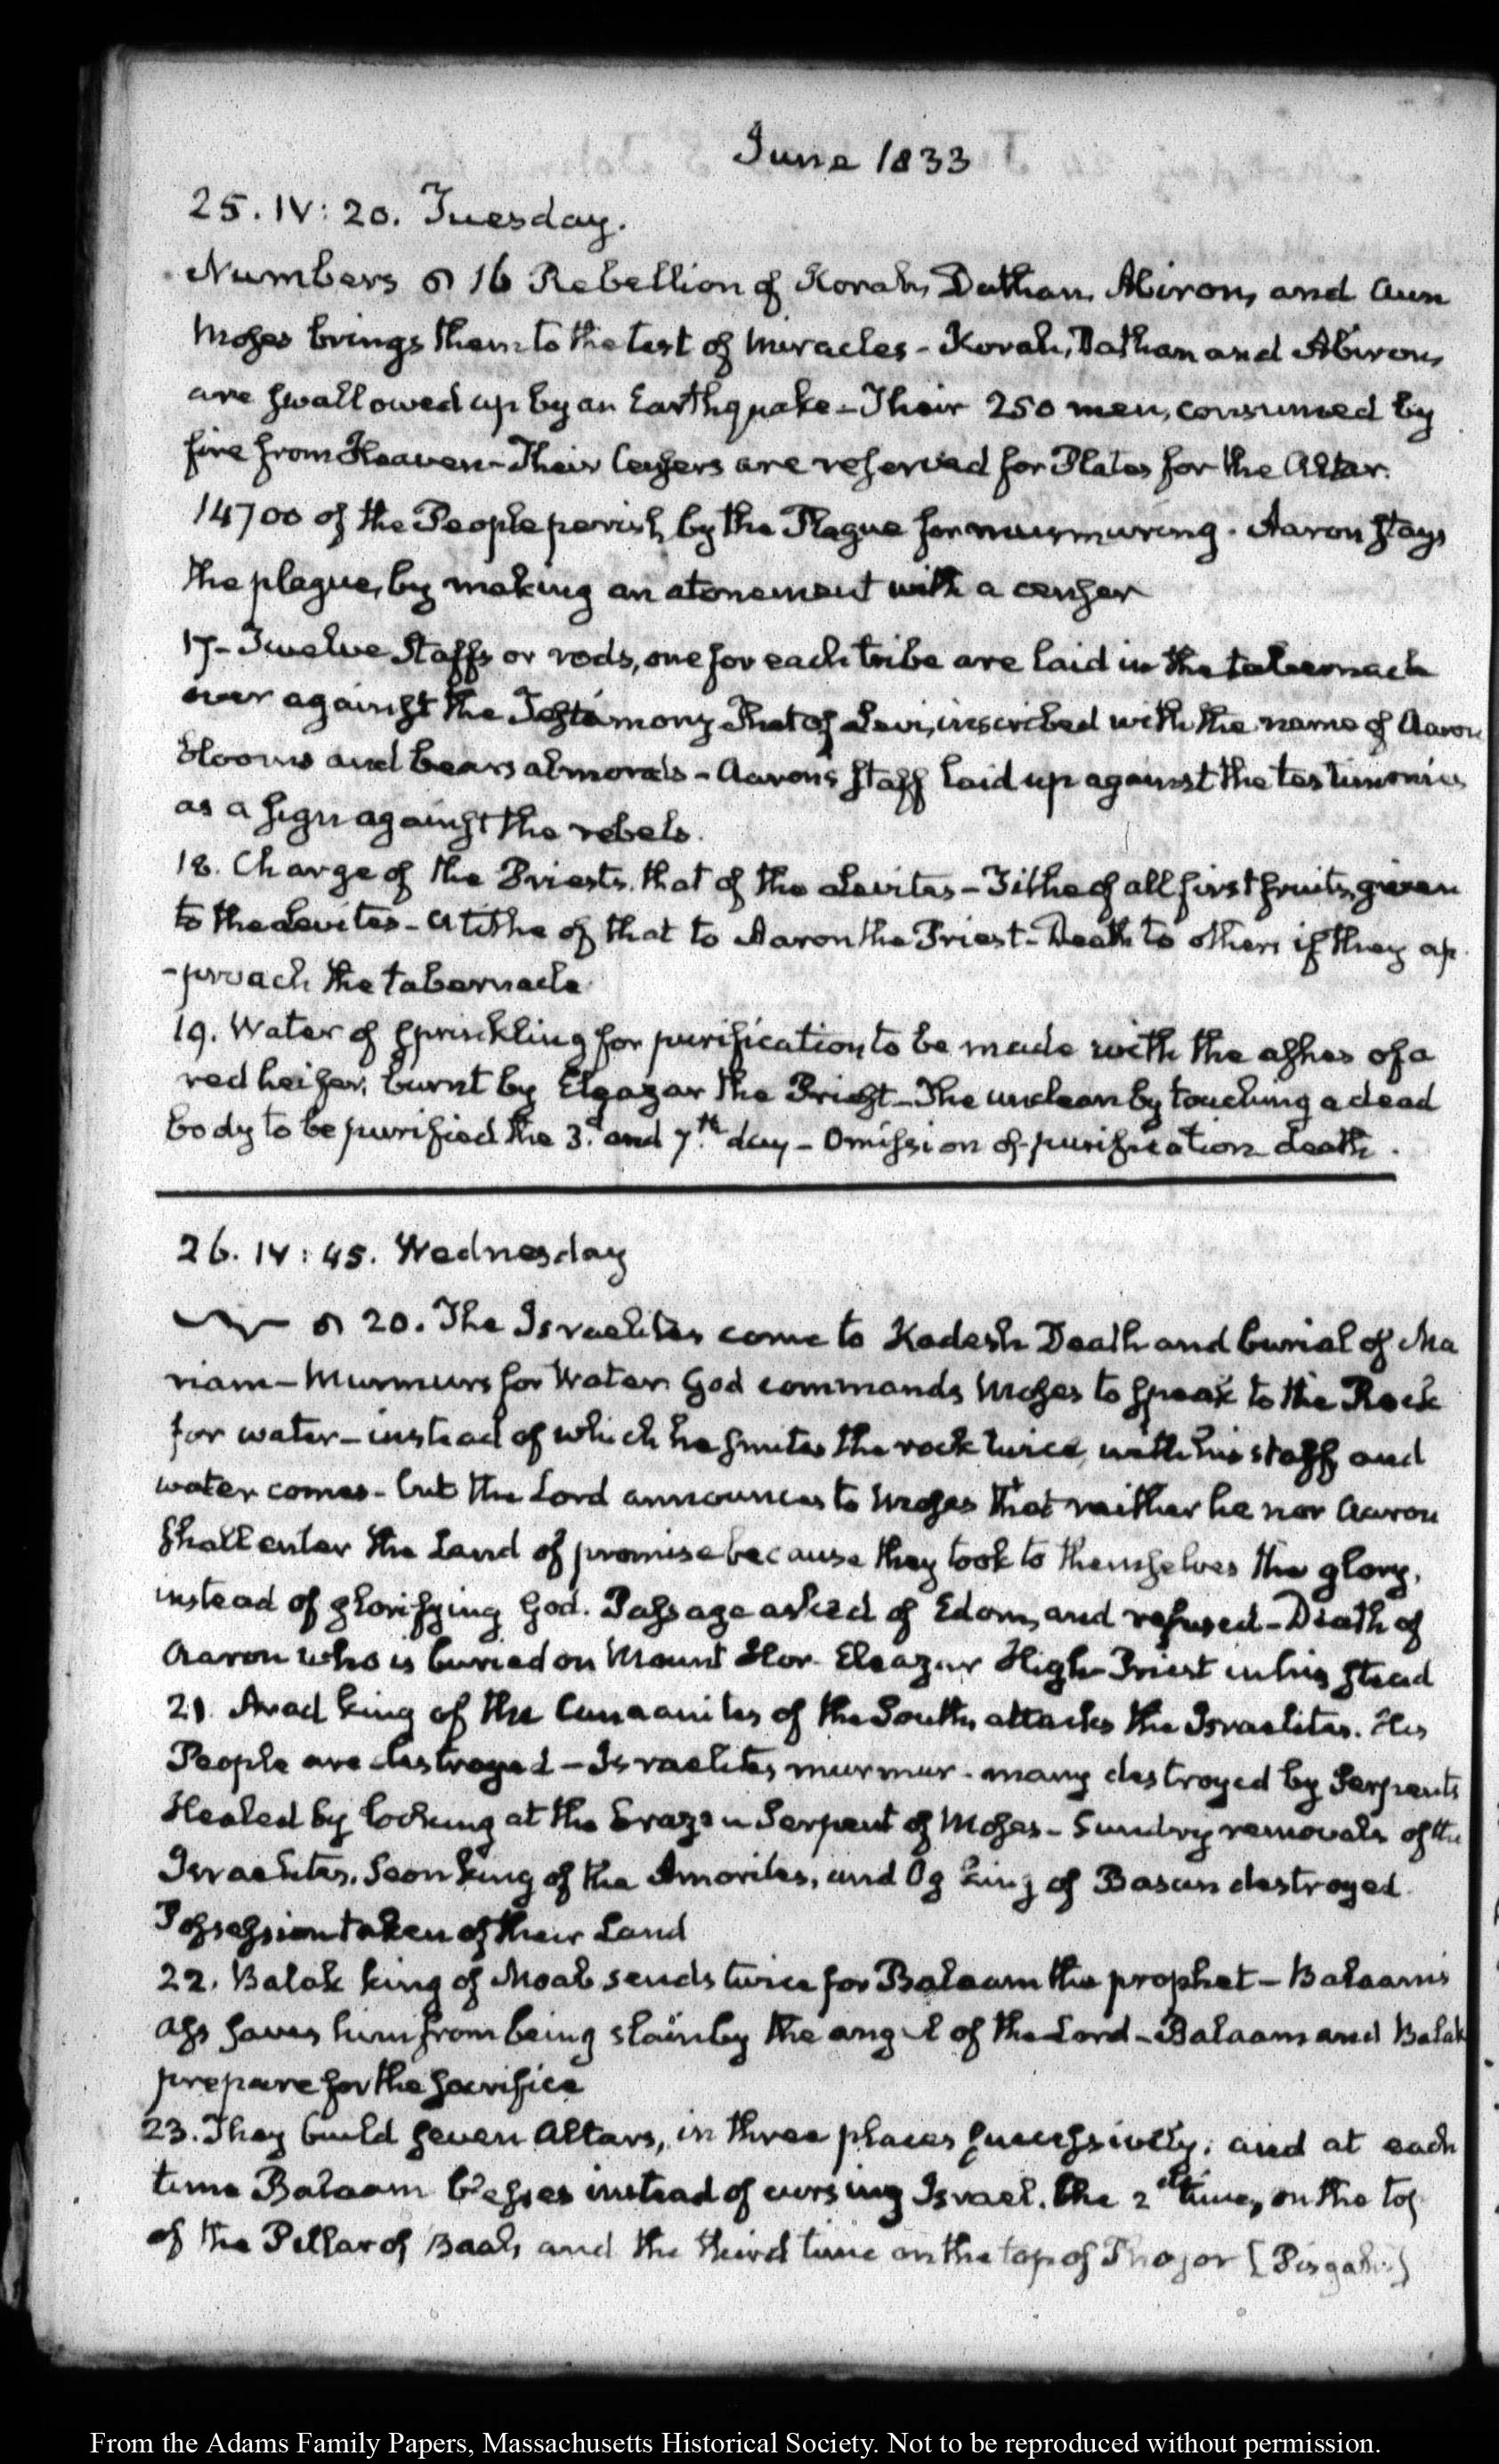 June 1833
25. IV: 20. Tuesday.
Numbers 16 Rebellion of Korah, Dathan, Abiron, and Aun
Moses brings them to the test of miracles - Korah, Dathan and Abiron,
are swallowed up by an Earthquake - Their 250 men, consumed by
fire from Heaven - Their Censers are reserved for Plates for the Altar.
14700 of the People perish by the Plague for murmuring. Aaron stays
the plague, by making an atonement with a censer
17 - Twelve Staffs or rods, one for each tribe are laid in the tabernacle
over against the Testamony That of Levi, inscribed with the name of Aaron
blooms and bears almonds - Aaron's staff laid up against the testimonies
as a sign against the rebels.
18. Charge of the Priests, that of the Levites - Tithe of all first fruits, given
to the Levites - a tithe of that to Aaron the Priest - Death to others if they ap
-proach the tabernacle
19. Water of sprinkling for purification, to be made with the ashes of a
red heifer, burnt by Eleazar the Priest - The unclean by touching a dead
body to be purified the 3.d and 7.th day - Omission of purification death.
26. IV: 45. Wednesday
20. The Israelites come to Kadesh Death and burial of Ma
riam - Murmurs for Water God commands Moses to speak to the Rock
for water - instead of which he smites the rock twice, with his staff and
water comes - but the Lord announces to Moses that neither he nor Aaron
shall enter the Land of promise because they took to themselves the glory,
instead of glorifying God. Passage asked of Edom, and refused - Death of
Aaron who is buried on Mount Hor. Eleazar High-Priest in his stead
21. Arad king of the Canaanites of the South, attacks the Israelites. His
People are destroyed - Israelites murmur. many destroyed by Serpents
Healed by looking at the brazen Serpent of Moses - Sundry removals of the
Israelites. Seon king of the Amorites, and Og king of Basan destroyed.
Possession taken of their Land
22. Balak king of Moab sends twice for Balaam the prophet - Balaam's
ass saves him from being slain by the angel of the Lord - Balaam and Balak
prepare for the sacrifice
23. They build seven Altars, in three places successively; and at each
time Balaam blesses instead of cursing Israel. the 2d time, on the top
of the Pillar of Baal, and the third time on the top of Phogor [Pisgah]
From the Adams Family Papers, Massachusetts Historical Society. Not to be reproduced without permission.